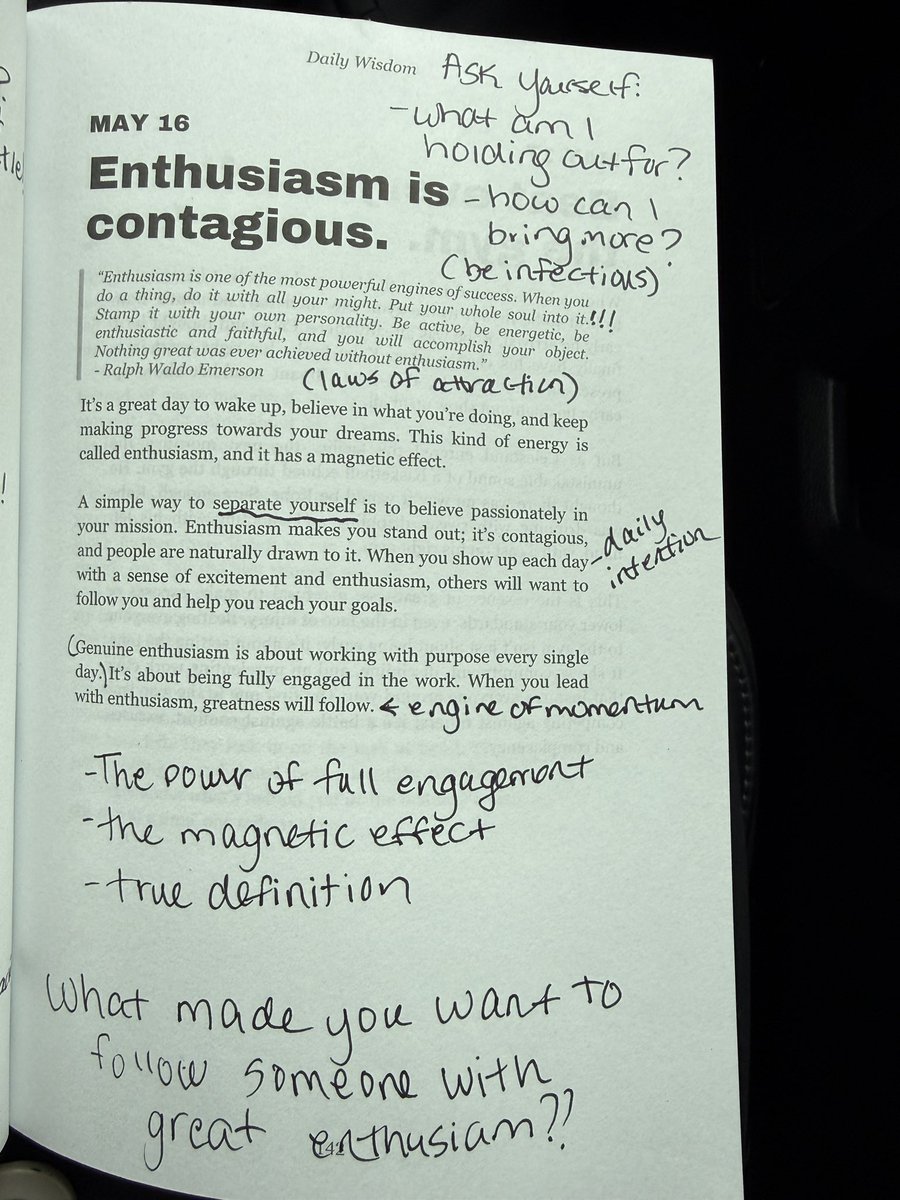 Daily Wisdom
Ask yourself:
- what am I
holding out for?
- how can I
bring more?
(be infectious)
MAY 16
Enthusiasm is
contagious.
“Enthusiasm is one of the most powerful engines of success. When you
do a thing, do it with all your might. Put your whole soul into it.!!!
Stamp it with your own personality. Be active, be energetic, be
enthusiastic and faithful, and you will accomplish your object.
Nothing great was ever achieved without enthusiasm.”
- Ralph Waldo Emerson
(laws of attraction)
It’s a great day to wake up, believe in what you’re doing, and keep
making progress towards your dreams. This kind of energy is
called enthusiasm, and it has a magnetic effect.
A simple way to separate yourself is to believe passionately in
your mission. Enthusiasm makes you stand out; it’s contagious,
and people are naturally drawn to it. When you show up each day
with a sense of excitement and enthusiasm, others will want to
follow you and help you reach your goals.
- daily
intention
(Genuine enthusiasm is about working with purpose every single
day.) It’s about being fully engaged in the work. When you lead
with enthusiasm, greatness will follow. ← engine of momentum
- The power of full engagement
- the magnetic effect
- true definition
What made you want to
follow someone with
great enthusiam??
142